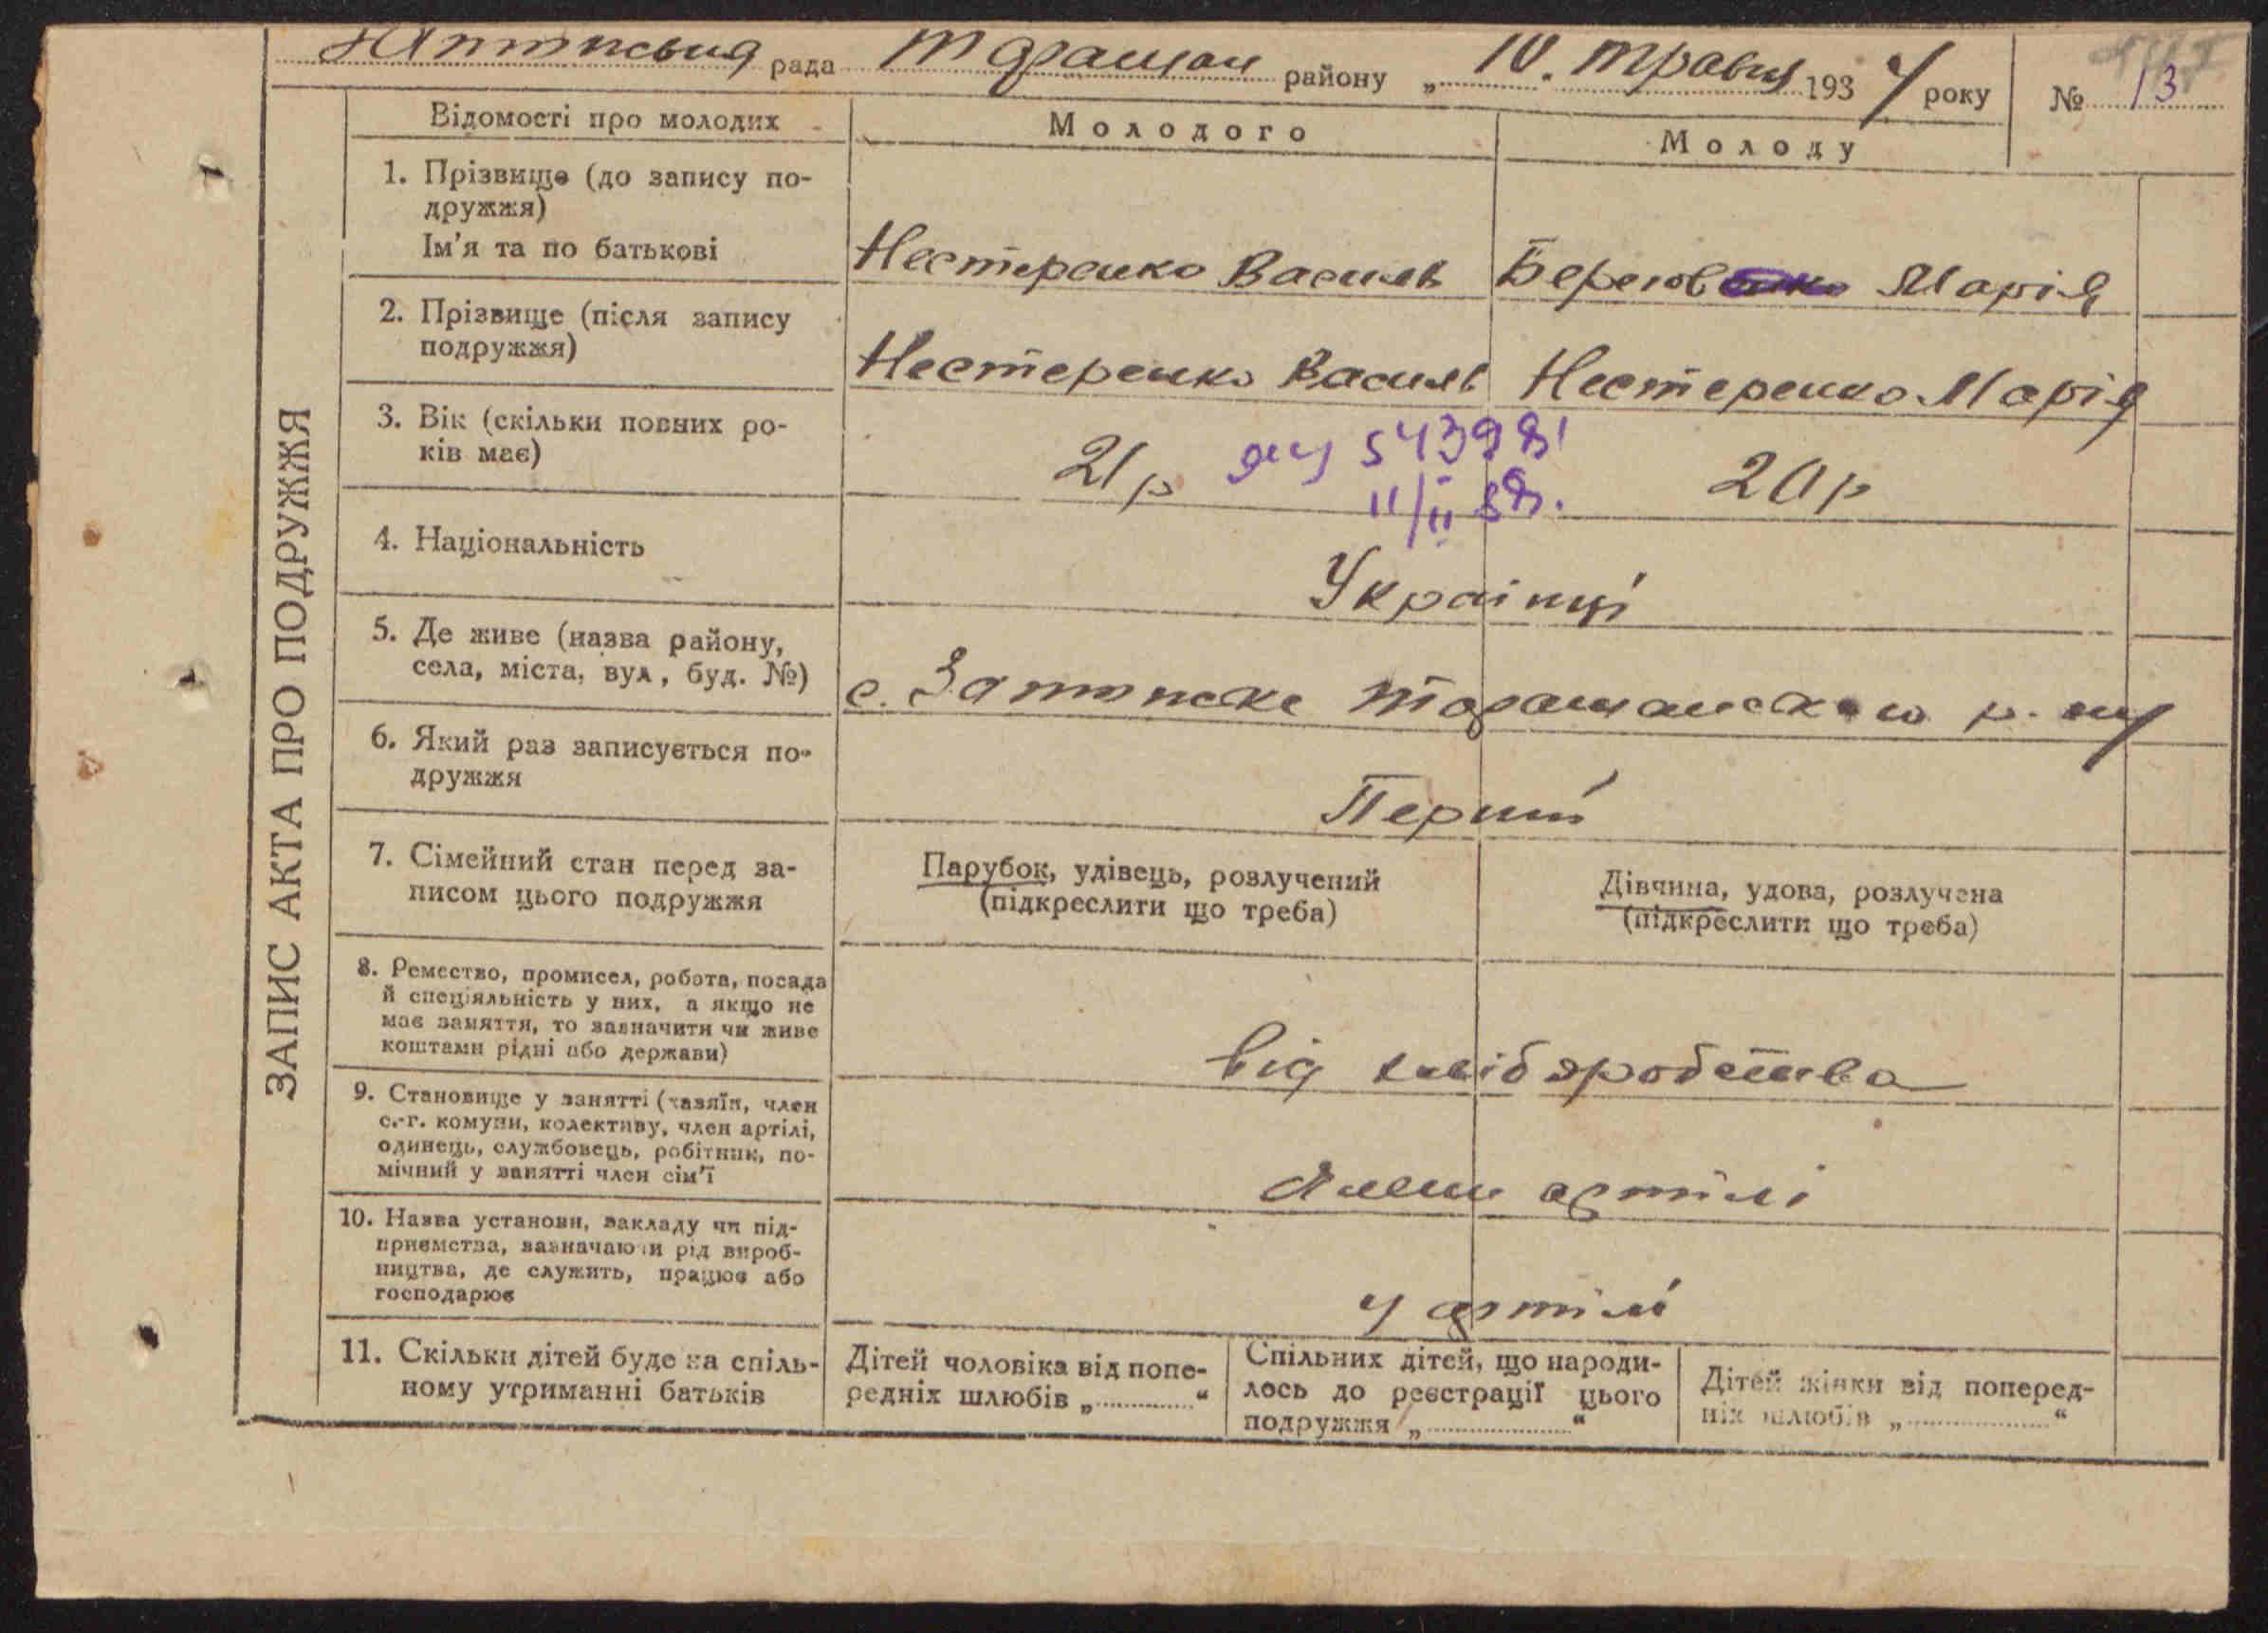 рада Таращан району „ 10. травня 1934 року № 13
ЗАПИС АКТА ПРО ПОДРУЖЖЯ
Відомості про молодих
Молодого
Молоду
1. Прізвище (до запису по-
дружжя)
Ім'я та по батькові
Нестеренко Василь
Марія
2. Прізвище (після запису
подружжя)
Нестеренко Василь
Нестеренко Марія
3. Вік (скільки повних ро-
ків має)
21 р
543981
20 р
4. Національність
Українці
5. Де живе (назва району,
села, міста, вул, буд. №)
с. Таращанского р-ну
6. Який раз записується по-
дружжя
Перший
7. Сімейний стан перед за-
писом цього подружжя
Парубок, удівець, розлучений
(підкреслити що треба)
Дівчина, удова, розлучена
(підкреслити що треба)
8. Ремество, промисел, робота, посада
й спеціяльність у них, а якщо не
має заняття, то зазначити чи живе
коштами рідні або держави)
Від хлібаробства
9. Становище у занятті (хазяїн, член
с.-г. комуни, колективу, член артілі,
одинець, службовець, робітник, по-
мічний у занятті член сім'ї
Члени артілі
10. Назва установи, закладу чи під-
приємства, зазначаючи рід вироб-
ництва, де служить, працює або
господарює
у артілі
11. Скільки дітей буде на спіль-
ному утриманні батьків
Дітей чоловіка від попе-
редніх шлюбів „ “
Спільних дітей, що народи-
лось до реєстрації цього
подружжя „ “
Дітей жінки від поперед-
ніх шлюбів „ “